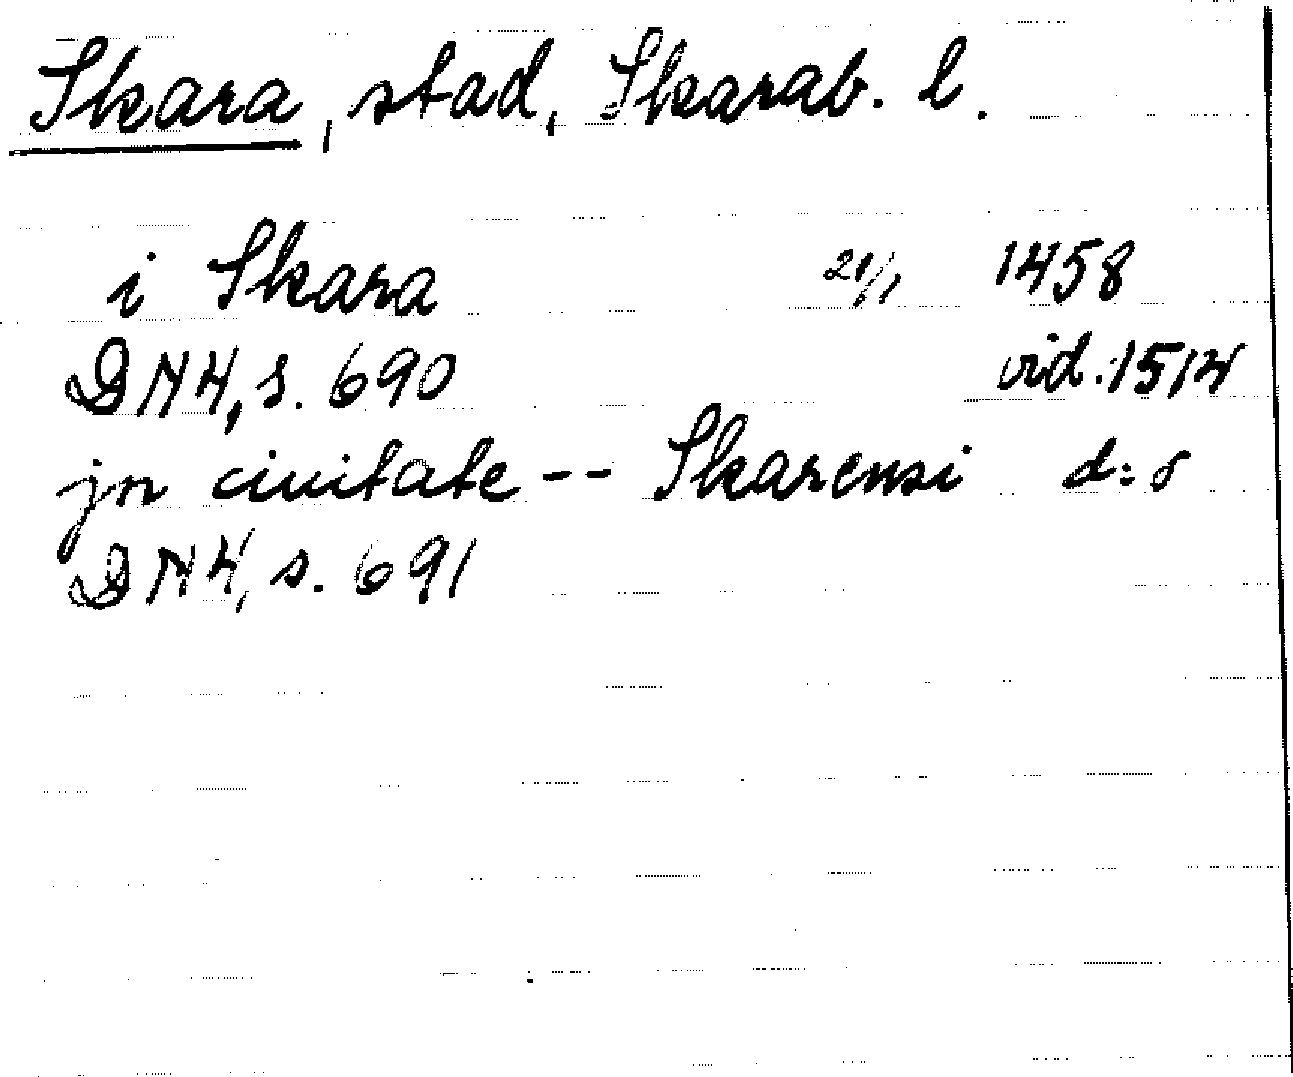 Skara, stad, Skarab. l.
i Skara 21/1 1458
DN 4, s. 690 vid. 1514
jn ciuitate -- Skarensi d:o
DN 4, s. 691